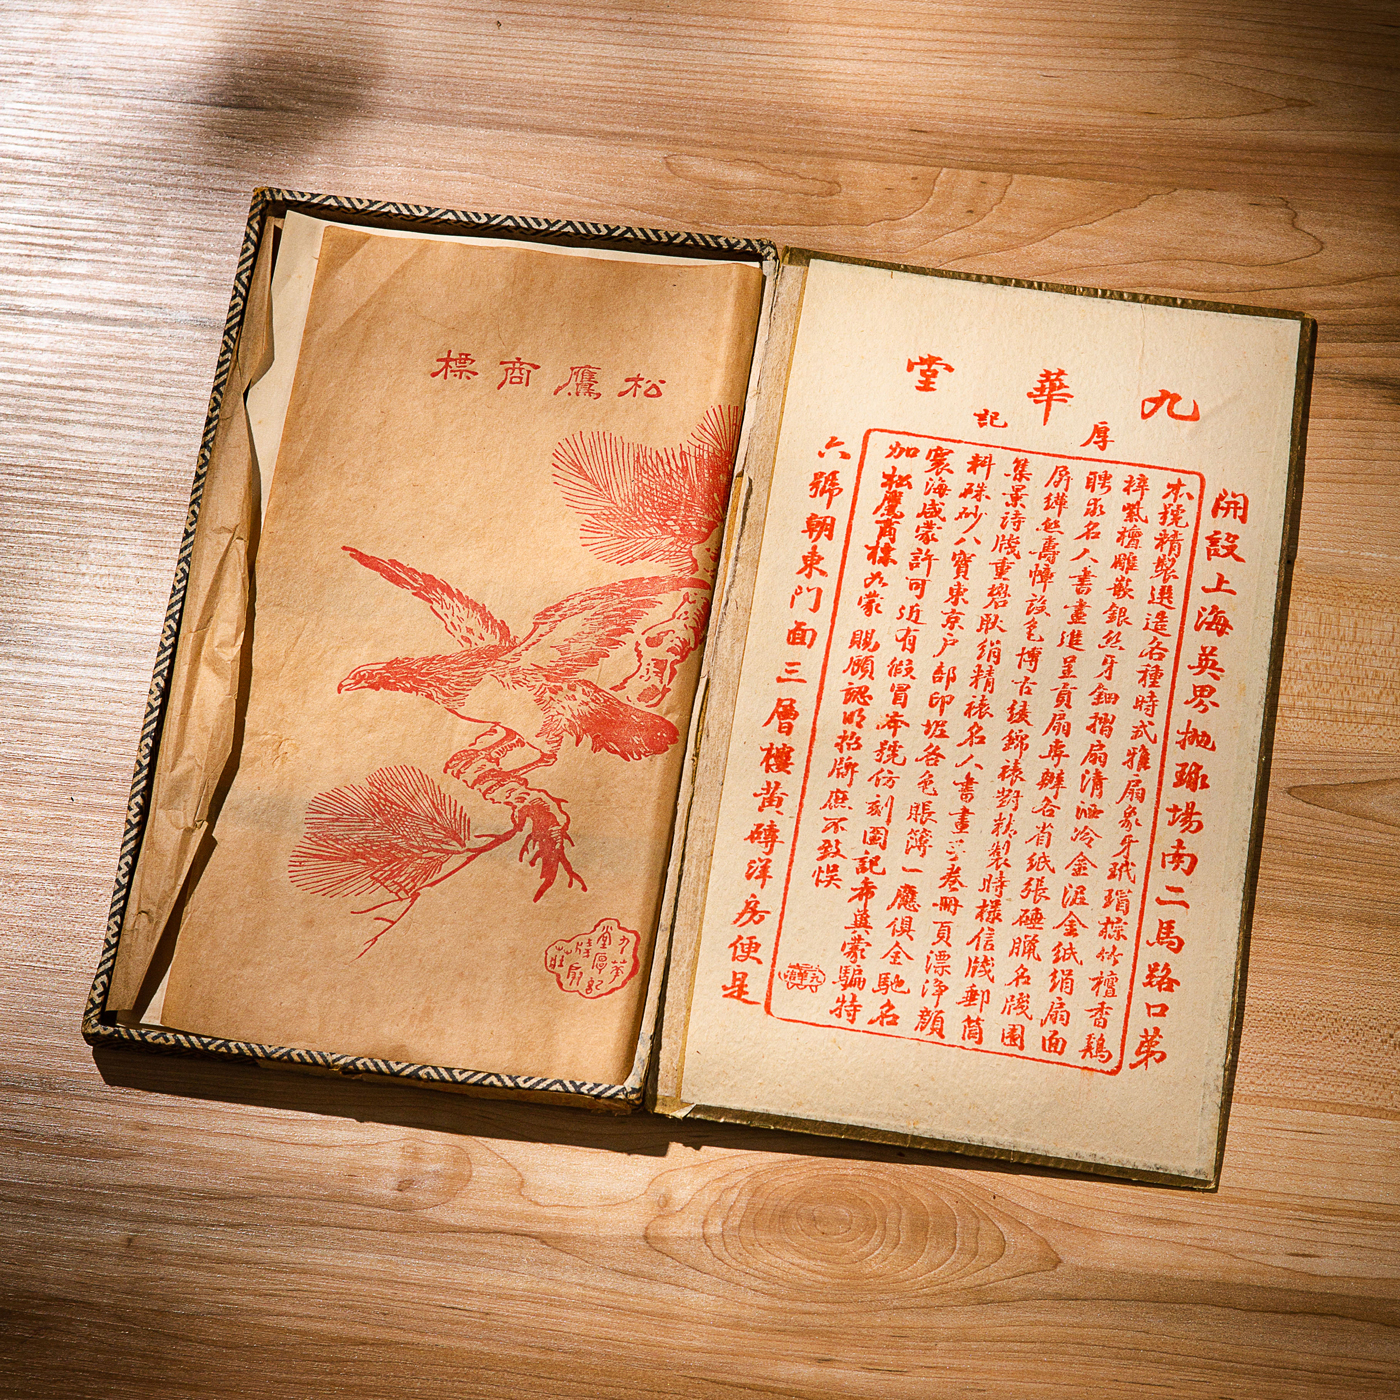 九華堂
厚記
開設上海英界抛球場南二馬路口第
本號精製選造各種時式雅扇象牙玳瑁棕竹檀香鷄
梓紫檀雕嵌銀絲牙鈿摺扇清洒冷金泥金紙絹扇面
聘求名人書畫進呈貢扇專辦各省紙張硾臘名牋圍
屏絲壽幛設色博古綾錦裱對款製時樣信牋郵筒
集景詩牋重礬耿絹精裱名人書畫手卷冊頁漂淨顏
料硃砂八寶東京戶部印坭各色賬簿一應俱全馳名
寰海咸蒙許可近有假冒本號仿刻圖記希兾蒙騙特
加松鷹商標如蒙 賜顧認明招牌庶不致悞
六號朝東門面三層樓黃磚洋房便是
松鷹商標
九華
堂厚記
牋扇
莊